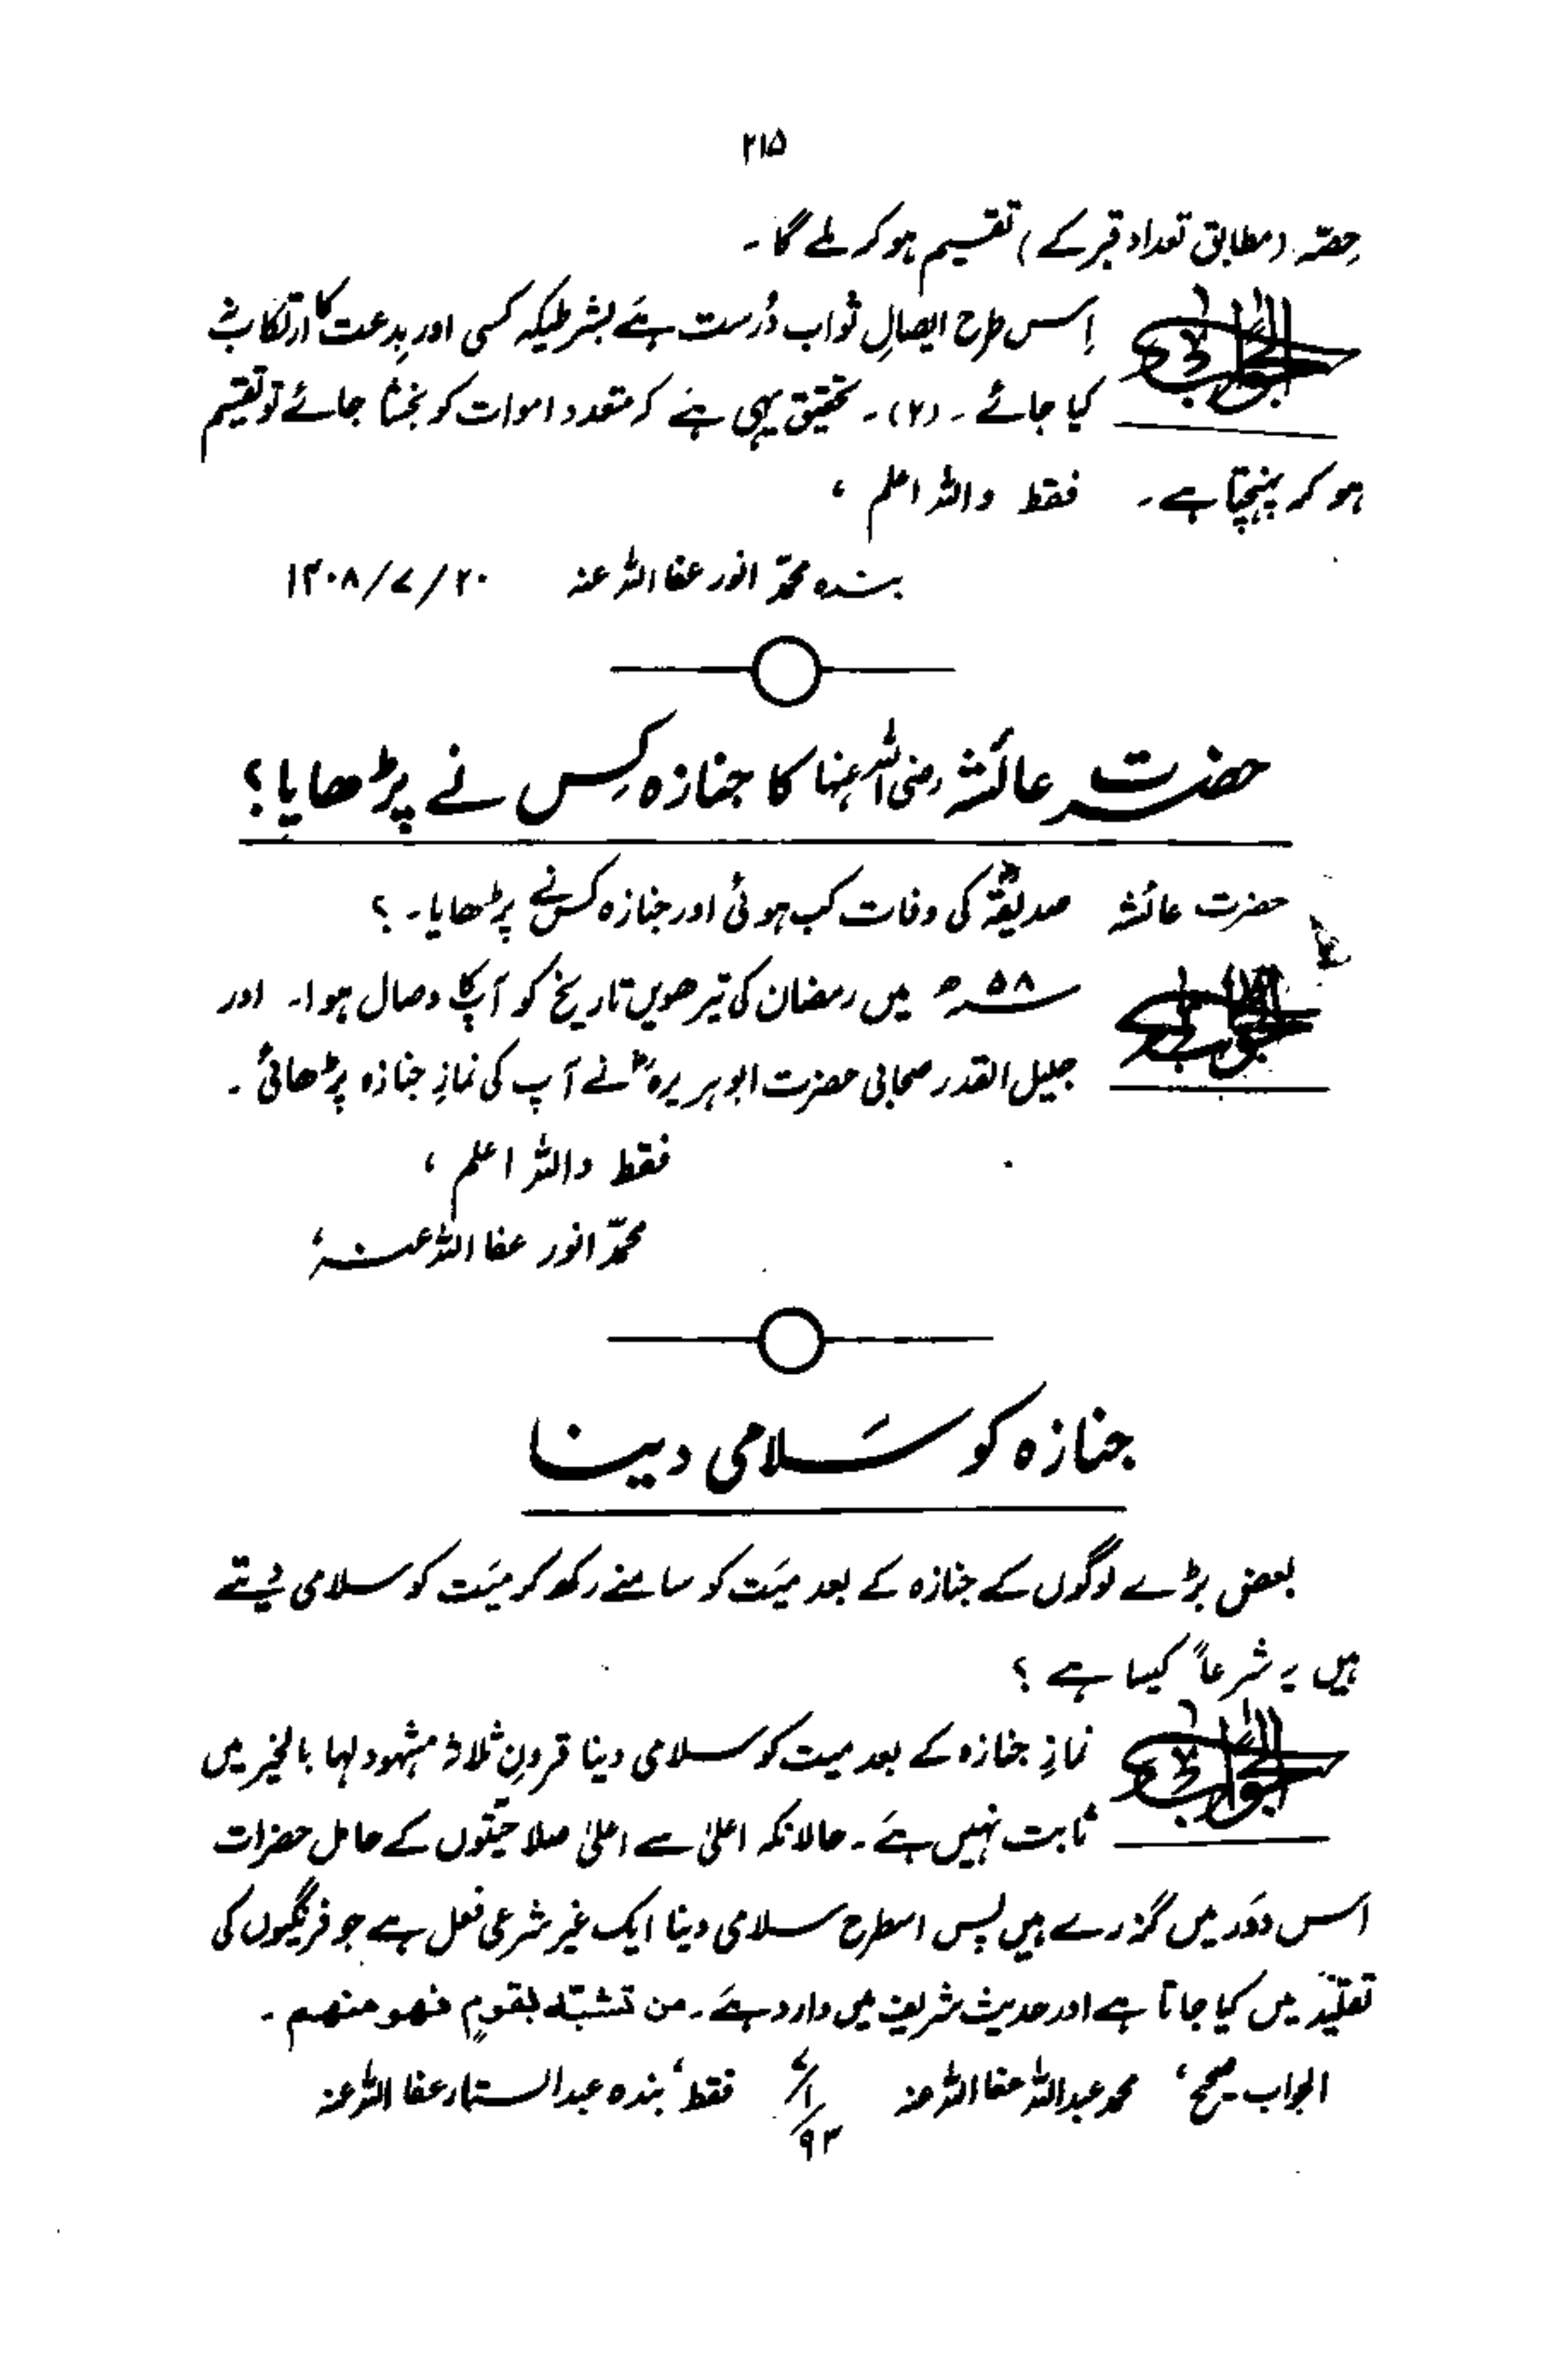 ۲۱۵
حصّہ (مطابق تعداد قبر کے) تقسیم ہو کر ملے گا۔
الجواب اِس طرح ایصالِ ثواب دُرست ہے بشرطیکہ کسی اور بِدعت کا ارتکاب نہ
کیا جائے۔ (۲)۔ تحقیق یہی ہے کہ متعدد اموات کو بخشا جائے تو تقسیم
ہو کر پہنچتا ہے۔ فقط واللہ اعلم،
بندہ محمّد انور عفا اللہ عنہ ۲۰/۷/۱۴۰۸
حضرت عائشہ رضی اللہ عنہا کا جنازہ کِس نے پڑھایا؟
حضرت عائشہ صدیقہؓ کی وفات کب ہوئی اور جنازہ کس نے پڑھایا۔؟
الجواب ۵۸ھ میں رمضان کی تیرھویں تاریخ کو آپکا وصال ہوا۔ اور
جلیل القدر صحابی حضرت ابوہریرہؓ نے آپ کی نمازِ جنازہ پڑھائی۔
فقط واللہ اعلم،
محمّد انور عفا اللہ عنہٗ
جنازہ کو سَلامی دینا
بعض بڑے لوگوں کے جنازہ کے بعد میّت کو سامنے رکھ کر میّت کو سلامی دیتے
ہیں یہ شرعاً کیسا ہے؟
الجواب نمازِ جنازہ کے بعد میت کو سلامی دینا قرونِ ثلاثہ مشہود لہا بالخیر میں
ثابت نہیں ہے۔ حالانکہ اعلیٰ سے اعلیٰ صلاحیّتوں کے حامل حضرات
اس دَور میں گزرے ہیں پس اسطرح سلامی دینا ایک غیر شرعی فعل ہے جو فرنگیوں کی
تقلید میں کیا جاتا ہے اور حدیث شریف میں وارد ہے۔ من تشبّہ بقومٍ فھو منھم۔
الجواب صحیح، محمد عبداللہ عفا اللہ عنہ فقط، بندہ عبدالستار عفا اللہ عنہ
۹۳